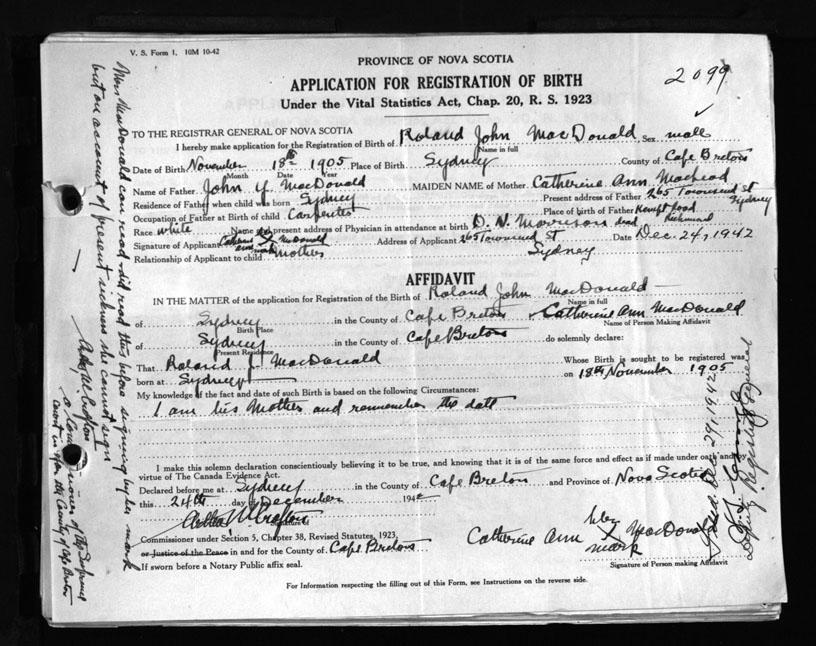 V. S. Form 1. 10M 10-42
PROVINCE OF NOVA SCOTIA
APPLICATION FOR REGISTRATION OF BIRTH
Under the Vital Statistics Act, Chap. 20, R. S. 1923
2099
TO THE REGISTRAR GENERAL OF NOVA SCOTIA
I hereby make application for the Registration of Birth of Roland John MacDonald Sex male
Name in full
Date of Birth November 18th 1905 Place of Birth Sydney County of Cape Breton
Month Date Year
Name of Father John J. MacDonald MAIDEN NAME of Mother Catherine Ann MacLeod
Residence of Father when child was born Sydney Present address of Father 265 Townsend St Sydney
Occupation of Father at Birth of child Carpenter Place of birth of Father Kempt Road Richmond
Race white Name and present address of Physician in attendance at birth D. N. Morrison dead
Signature of Applicant Catherine Ann X MacDonald Address of Applicant 265 Townsend St Sydney Date Dec. 24, 1942
Relationship of Applicant to child mother
AFFIDAVIT
IN THE MATTER of the application for Registration of the Birth of Roland John MacDonald
Name in full
of Sydney in the County of Cape Breton Catherine Ann MacDonald
Birth Place Name of Person Making Affidavit
of Sydney in the County of Cape Breton do solemnly declare:
Present Residence
That Roland J. MacDonald Whose Birth is sought to be registered was
born at Sydney on 18th November 1905
My knowledge of the fact and date of such Birth is based on the following Circumstances:
I am his Mother and remember the date
I make this solemn declaration conscientiously believing it to be true, and knowing that it is of the same force and effect as if made under oath and by
virtue of The Canada Evidence Act.
Declared before me at Sydney in the County of Cape Breton and Province of Nova Scotia
this 24th day of December 1942
Signature of
Commissioner under Section 5, Chapter 38, Revised Statutes, 1923
or Justice of the Peace in and for the County of Cape Breton
If sworn before a Notary Public affix seal.
Catherine Ann her X mark MacDonald
Signature of Person making Affidavit
For Information respecting the filling out of this Form, see Instructions on the reverse side.
Mrs MacDonald can read & did read this before signing by her mark
but on account of present sickness she cannot sign
a Commissioner of the Supreme
Court in & for the County of Cape Breton
Dec 29, 1942
Deputy Registrar General